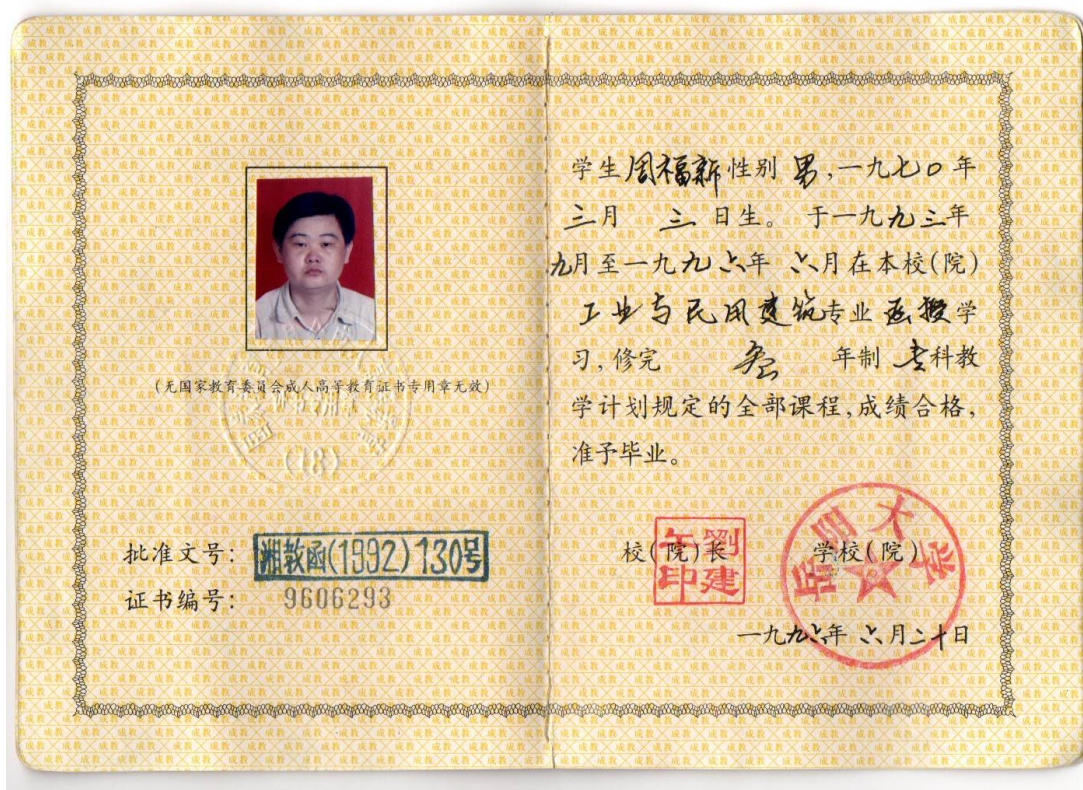 (无国家教育委员会成人高等教育证书专用章无效)
(18)
批准文号: 湘教函(1992)130号
证书编号: 9606293
学生周福新性别 男,一九七0年
三月 三 日生。 于一九九三年
九月至一九九六年 六月在本校(院)
工业与民用建筑专业 函授学
习,修完 叁 年制 专科教
学计划规定的全部课程,成绩合格,
准予毕业。
校(院)长 学校(院)
刘建 印
大学
一九九六年 六月二十日